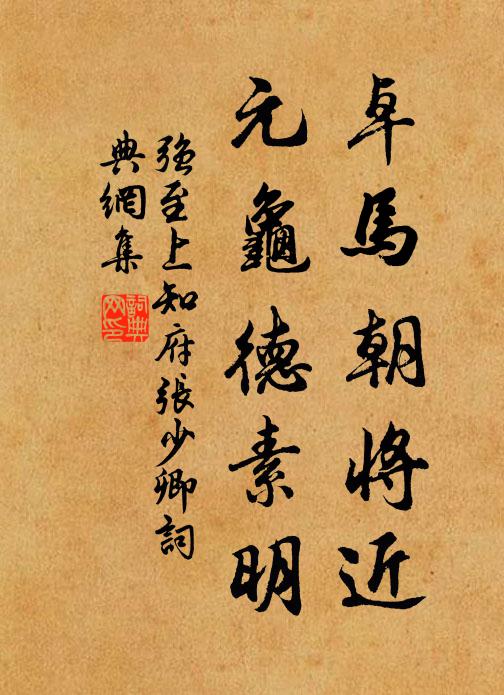 卓馬朝將近
元龜德素明
強至上知府張少卿詞
典網集
詞典網印